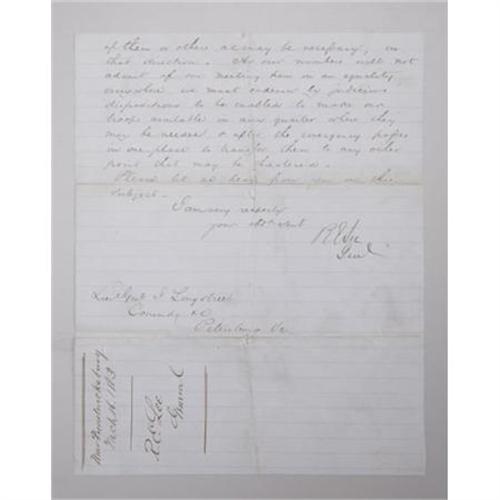 of them or others as may be necessary, in
that direction. As our numbers will not
admit of our meeting him on an equality
everywhere we must endeavor by judicious
dispositions to be enabled to make our
troops available in any quarter where they
may be needed & after the emergency passes
in one place to transfer them to any other
point that may be threatened.
Please let me hear from you on this
subject.
I am very respecty
your obt servt
R E Lee
Genl
Lieut Genl J Longstreet
Comndg &c
Petersburg Va
Near Fredericksburg
March 16. 1863
R E Lee
General